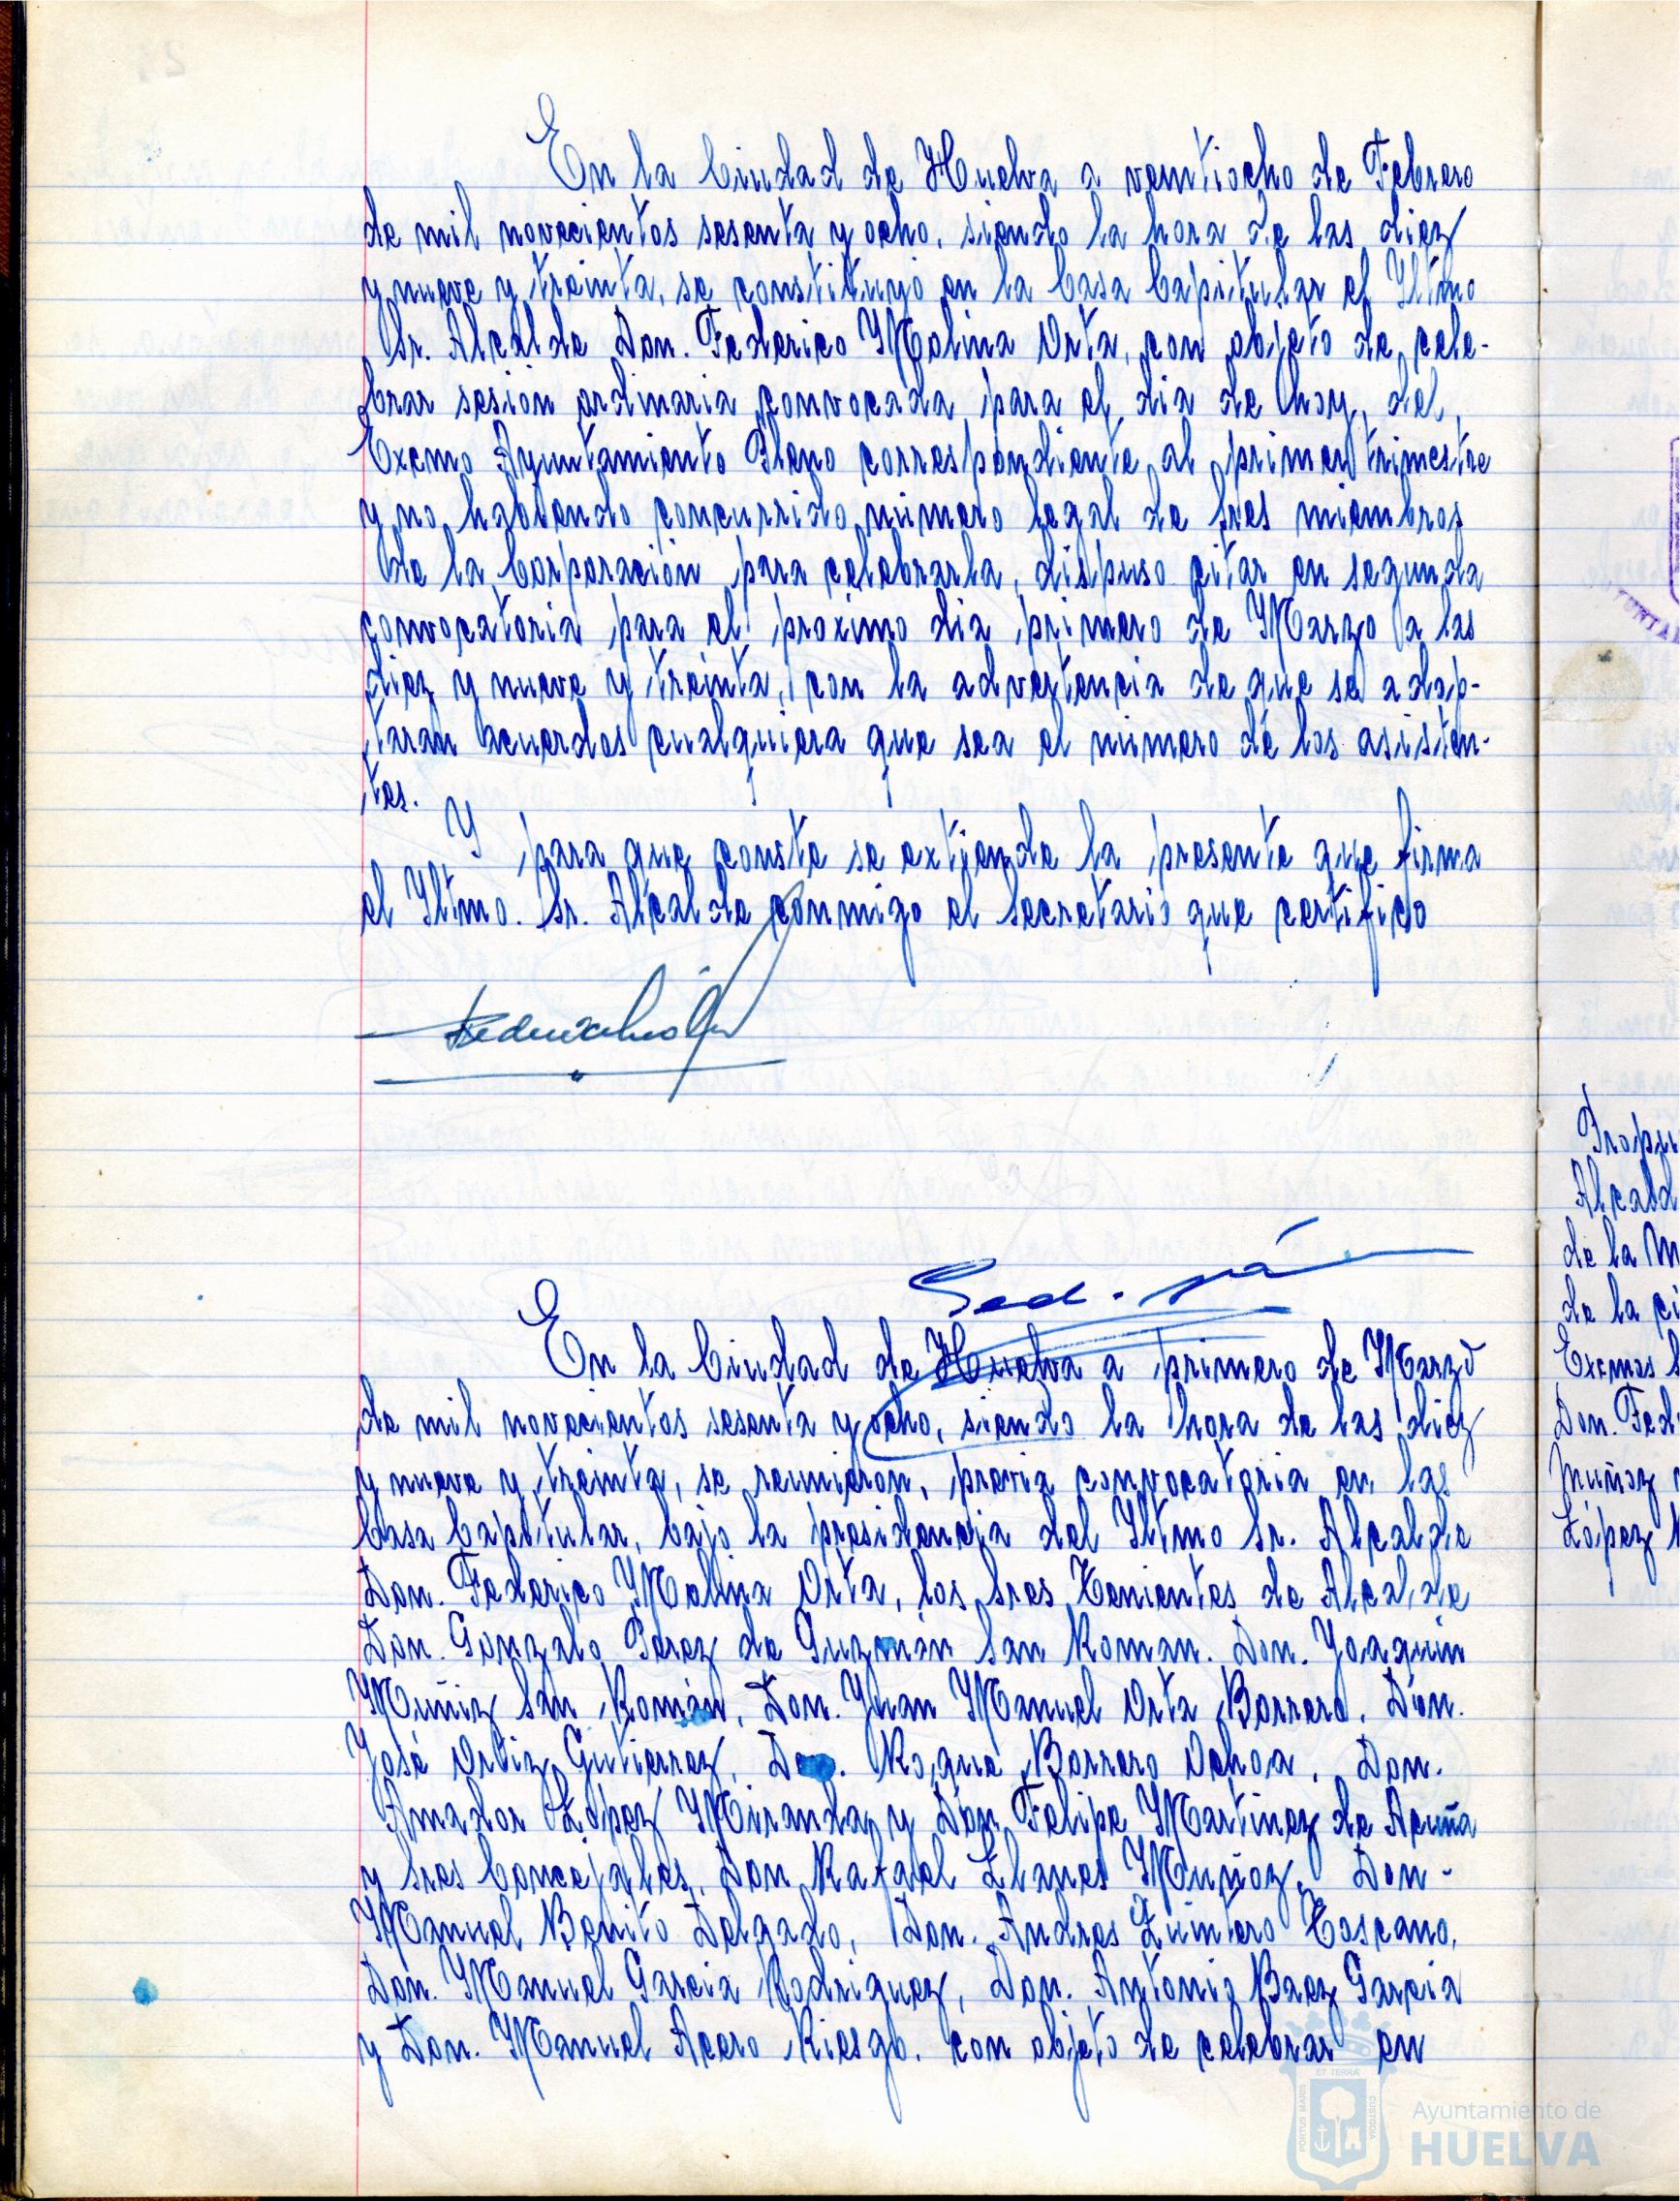 En la Ciudad de Huelva a ventiocho de Febrero
de mil novecientos sesenta y ocho, siendo la hora de las diez
y nueve y treinta, se constituyó en la Casa Capitular el Yltmo
Sr. Alcalde Don. Federico Molina Orta, con objeto de cele-
brar sesión ordinaria convocada para el dia de hoy, del
Excmo Ayuntamiento Pleno correspondiente al primer trimestre
y no habiendo concurrido número legal de Sres miembros
de la Corporación para celebrarla, dispuso citar en segunda
convocatoria para el próximo dia primero de Marzo a las
diez y nueve y treinta, con la advertencia de que se adop-
taran acuerdos cualquiera que sea el número de los asisten-
tes.
Y para que conste se extiende la presente que firma
el Yltmo. Sr. Alcalde conmigo el Secretario que certifico
En la Ciudad de Huelva a primero de Marzo
de mil novecientos sesenta y ocho, siendo la hora de las diez
y nueve y treinta, se reunieron, previa convocatoria en las
Casa Capitular, bajo la presidencia del Yltmo Sr. Alcalde
Don. Federico Molina Orta, los Sres Tenientes de Alcalde
Don. Gonzalo Perez de Guzmán San Roman. Don. Joaquin
Muñiz San Román, Don. Juan Manuel Orta Borrero, Don.
José Ortiz Gutierrez, Roque Borrero Ochoa, Don.
Amador López Miranda y Don Felipe Martinez de Acuña
y Sres Concejales, Don Rafael Llanes Muñoz, Don-
Manuel Benito Delgado, Don. Andres Quintero Toscano,
Don. Manuel Garcia Rodriguez, Don. Antonio Baez Garcia
y Don. Manuel Acero Riesgo. con objeto de celebrar en
Alcald
de la
de la
Excmos
Don. Fed
Muñoz
López
Ayuntamiento de
HUELVA